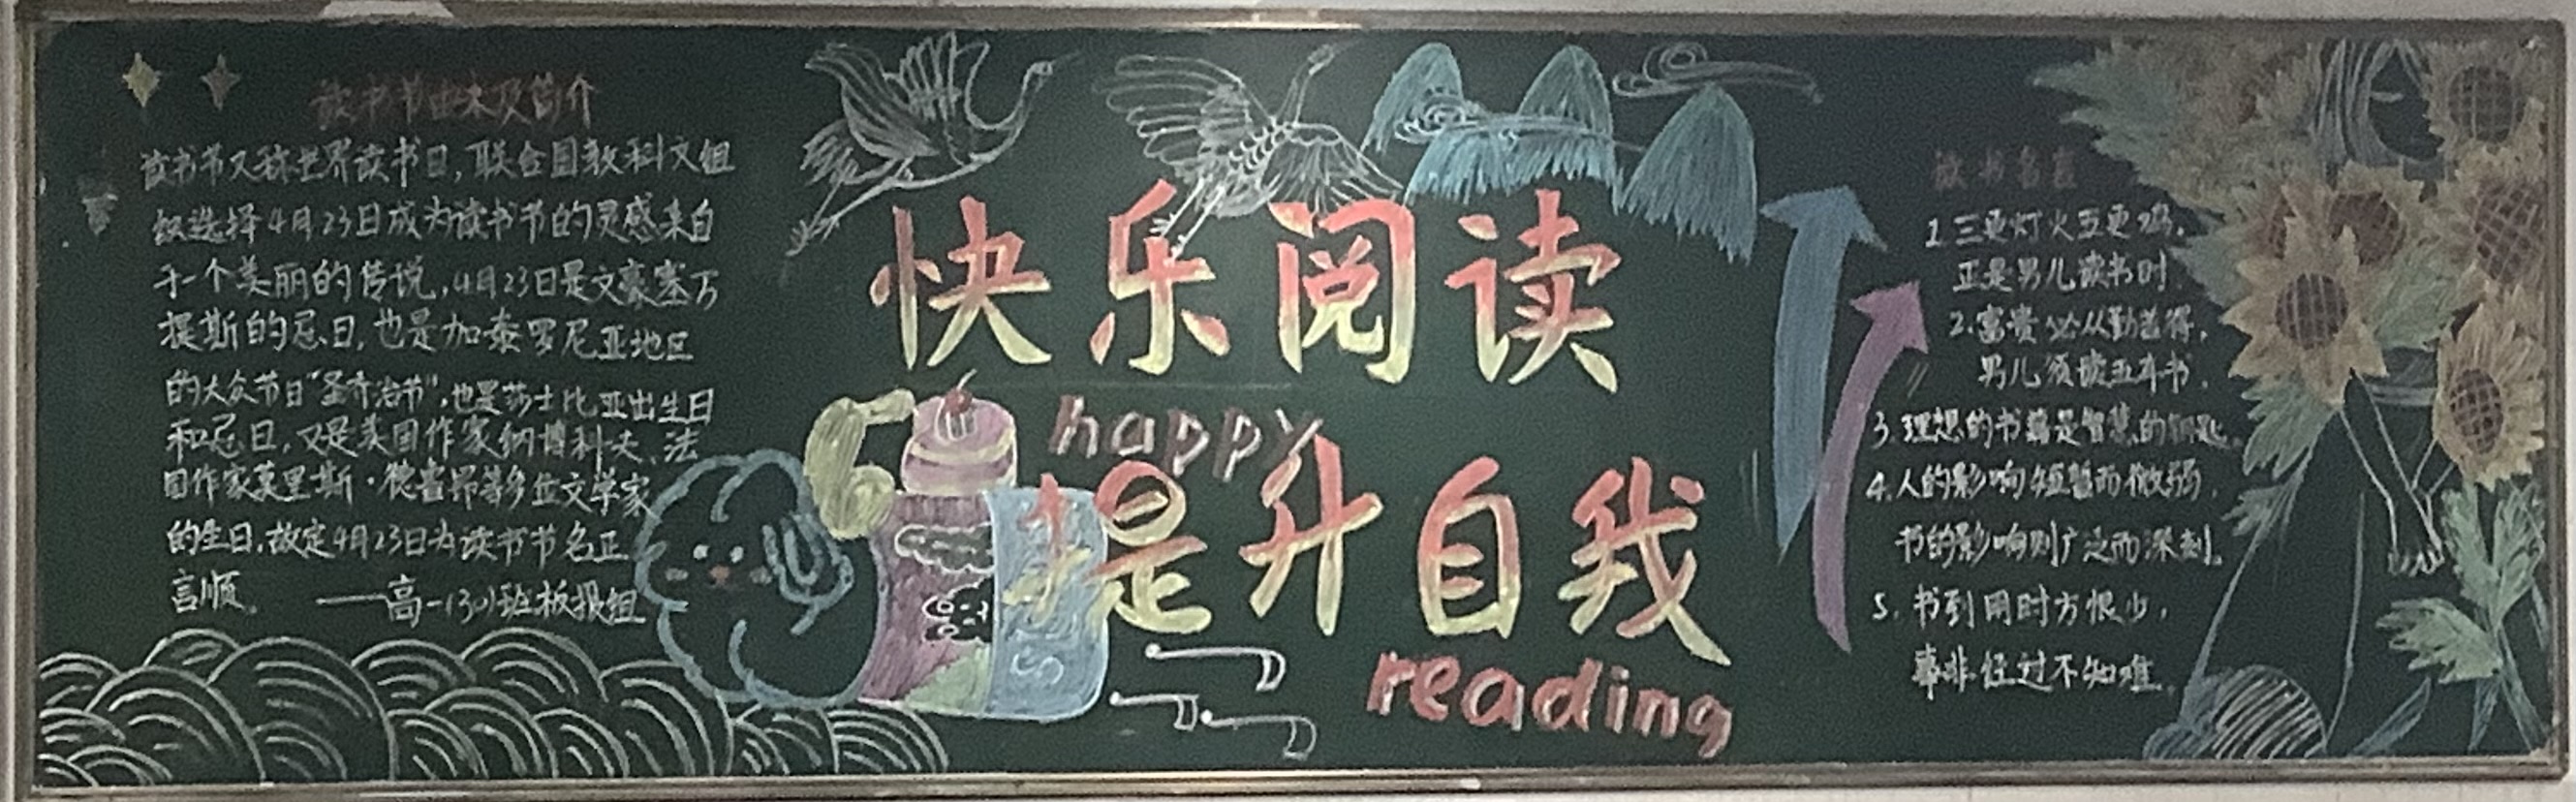 读书节由来及简介
读书节又称世界读书日,联合国教科文组
织选择4月23日成为读书节的灵感来自
于一个美丽的传说,4月23日是文豪塞万
提斯的忌日,也是加泰罗尼亚地区
的大众节日“圣乔治节”,也是莎士比亚出生日
和忌日,又是美国作家纳博科夫、法
国作家莫里斯·德鲁昂等多位文学家
的生日,故定4月23日为读书节名正
言顺。 ——高一(30)班板报组
快乐阅读
happy
提升自我
reading
读书名言
1.三更灯火五更鸡,
正是男儿读书时.
2.富贵必从勤苦得,
男儿须读五车书.
3.理想的书籍是智慧的钥匙.
4.人的影响短暂而微弱.
书的影响则广泛而深刻。
5.书到用时方恨少,
事非经过不知难.